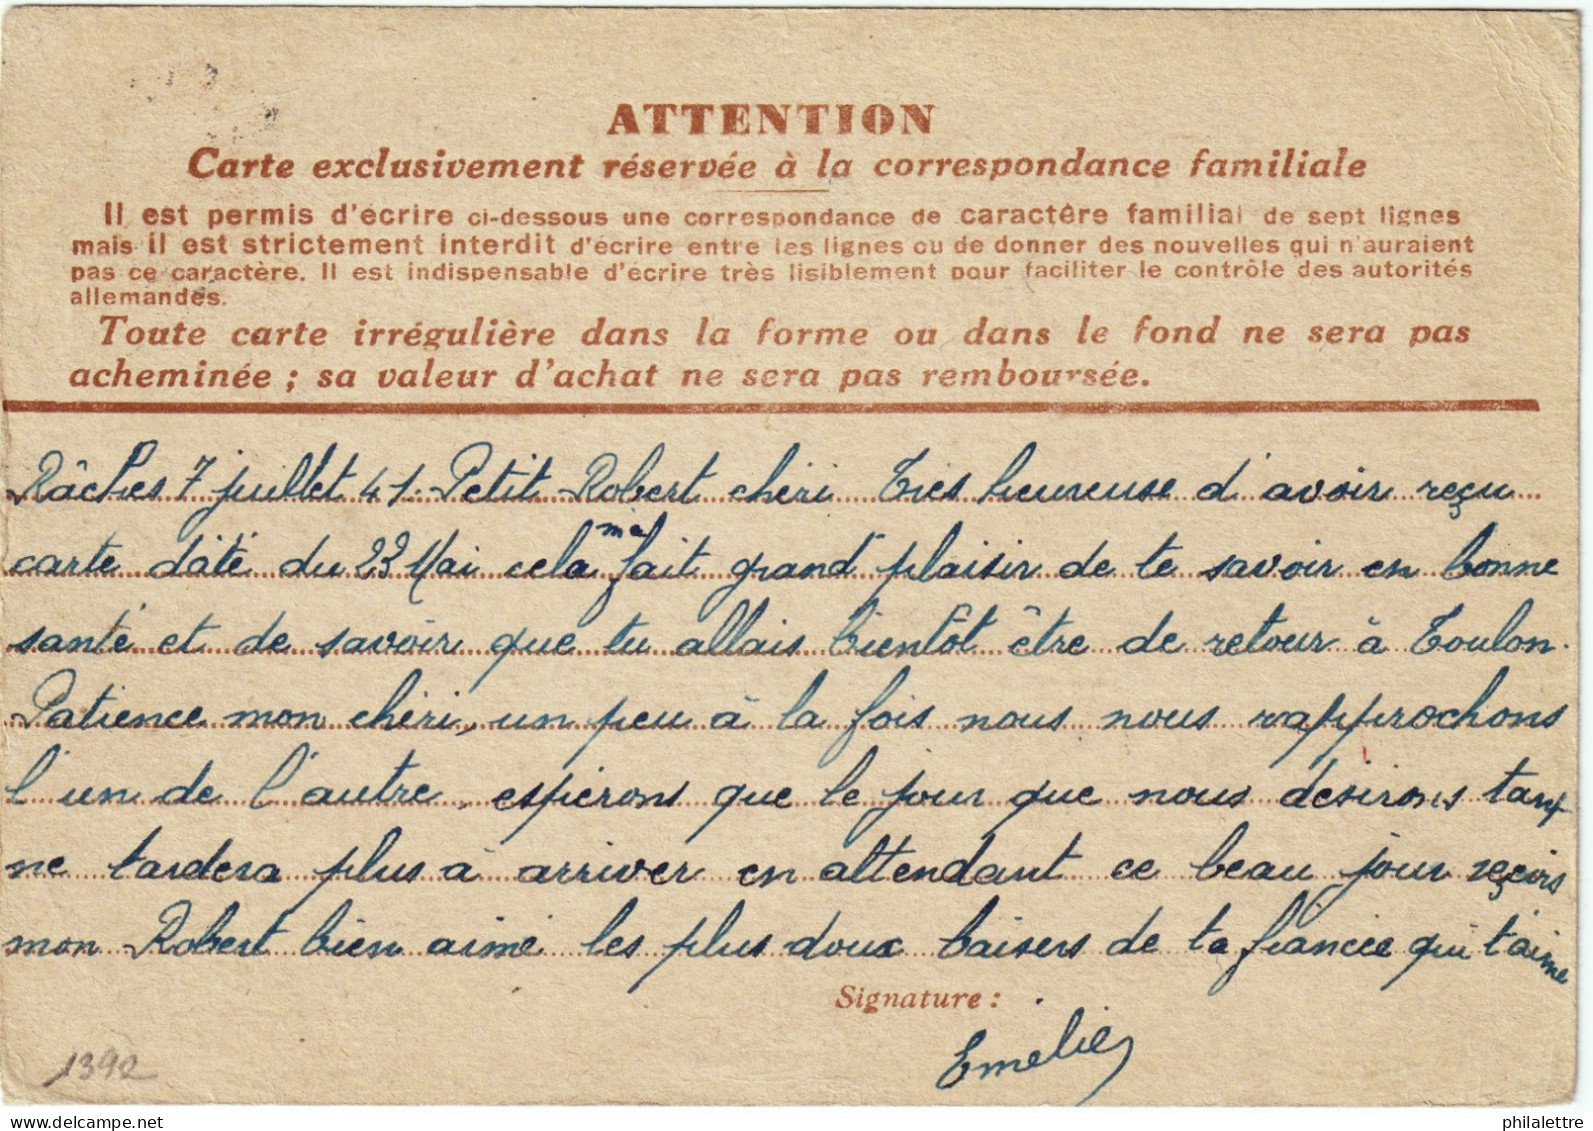 ATTENTION
Carte exclusivement réservée à la correspondance familiale
Il est permis d'écrire ci-dessous une correspondance de caractère familial de sept lignes
mais il est strictement interdit d'écrire entre les lignes ou de donner des nouvelles qui n'auraient
pas ce caractère. Il est indispensable d'écrire très lisiblement pour faciliter le contrôle des autorités
allemandes.
Toute carte irrégulière dans la forme ou dans le fond ne sera pas
acheminée ; sa valeur d'achat ne sera pas remboursée.
Râches 7 juillet 41. Petit Robert chéri Très heureuse d'avoir reçu
carte dâté du 23 Mai cela me fait grand plaisir de te savoir en bonne
santé et de savoir que tu allais bientôt être de retour à Toulon.
Patience mon chéri, un peu à la fois nous nous rapprochons
l'un de l'autre, espérons que le jour que nous désirons tant
ne tardera plus à arriver en attendant ce beau jour reçois
mon Robert bien aimé les plus doux baisers de ta fiancée qui t'aime
Signature :
Emélie
1392
philalettre